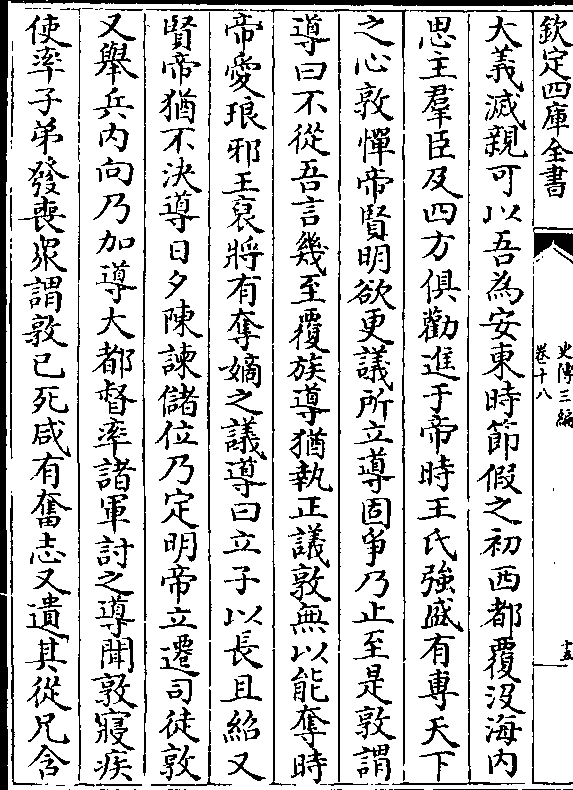 欽定四庫全書
史傳三編
卷十八
十五
大義滅親可以吾為安東時節假之初西都覆沒海內
思主羣臣及四方俱勸進于帝時王氏強盛有專天下
之心敦憚帝賢明欲更議所立導固爭乃止至是敦謂
導曰不從吾言幾至覆族導猶執正議敦無以能奪時
帝愛琅邪王裒將有奪嫡之議導曰立子以長且紹又
賢帝猶不決導日夕陳諫儲位乃定明帝立遷司徒敦
又舉兵內向乃加導大都督率諸軍討之導聞敦寢疾
使率子弟發喪眾謂敦已死咸有奮志又遺其從兄含